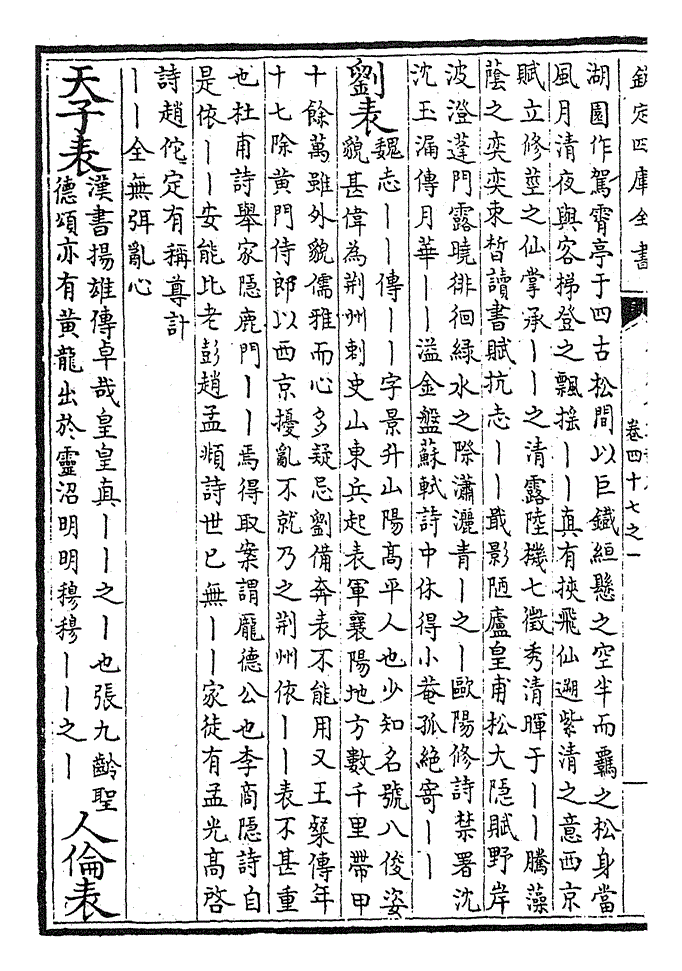 欽定四庫全書
卷四十七之一
湖園作駕霄亭于四古松間以巨鐵絙懸之空半而羈之松身當
風月清夜與客掃登之飄揺丨丨真有挾飛仙遡紫清之意西京
賦立修莖之仙掌承丨丨之清露陸機七徵秀清暉于丨丨騰藻
蔭之奕奕束晳讀書賦抗志丨丨戢影陋廬皇甫松大隱賦野岸
波澄蓬門露曉徘徊綠水之際瀟灑青丨之丨歐陽修詩禁署沈
沈玉漏傳月華丨丨溢金盤蘇軾詩中休得小菴孤絶寄丨丨
劉表
魏志丨丨傳丨丨字景升山陽高平人也少知名號八俊姿
貌甚偉為荆州刺史山東兵起表軍襄陽地方數千里帶甲
十餘萬雖外貌儒雅而心多疑忌劉備奔表不能用又王粲傳年
十七除黄門侍郎以西京擾亂不就乃之荆州依丨丨表不甚重
也杜甫詩舉家隱鹿門丨丨焉得取案謂龎德公也李商隱詩自
是依丨丨安能比老彭趙孟頫詩世已無丨丨家徒有孟光高啓
詩趙佗定有稱尊計
丨丨全無弭亂心
天子表
漢書揚雄傳卓哉皇皇真丨丨之丨也張九齡聖
德頌亦有黄龍出於靈沼明明穆穆丨丨之丨
人倫表